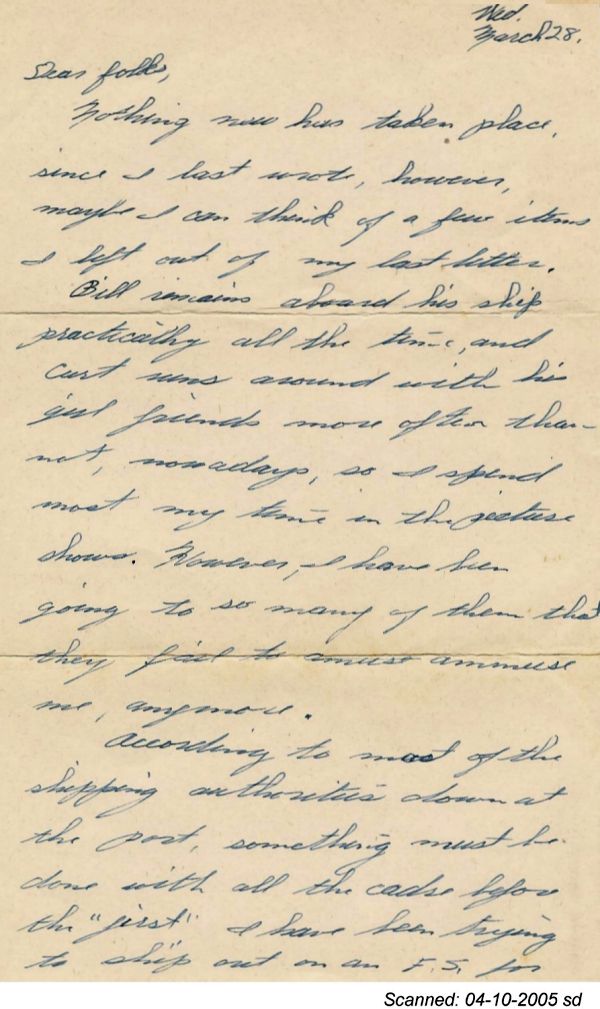 Wed.
March 28.
Dear folks,
Nothing new has taken place,
since I last wrote, however,
maybe I can think of a few items
I left out of my last letter.
Bill remains aboard his ship
practically all the time, and
Curt runs around with his
girl friends more often than
not, nowadays, so I spend
most my time in the picture
shows. However, I have been
going to so many of them that
they fail to amuse ammuse
me, anymore.
According to most of the
shipping authorities down at
the port, something must be
done with all the cadse before
the "first" I have been trying
to ship out on an F.S. for
Scanned: 04-10-2005 sd